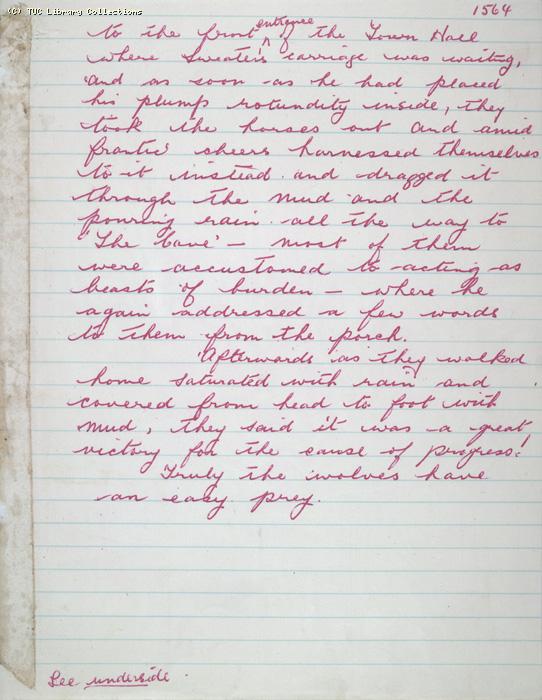 (C) TUC Library Collections
1564
to the front entrance of the Town Hall
where Sweater's carriage was waiting,
and as soon as he had placed
his plump rotundity inside, they
took the horses out and amid
frantic cheers harnessed themselves
to it instead and dragged it
through the mud and the
pouring rain all the way to
'The Cave' – most of them
were accustomed to acting as
beasts of burden – where he
again addressed a few words
to them from the porch.
Afterwards as they walked
home saturated with rain and
covered from head to foot with
mud, they said it was a great
victory for the cause of progress!
Truly the wolves have
an easy prey.
See underside.